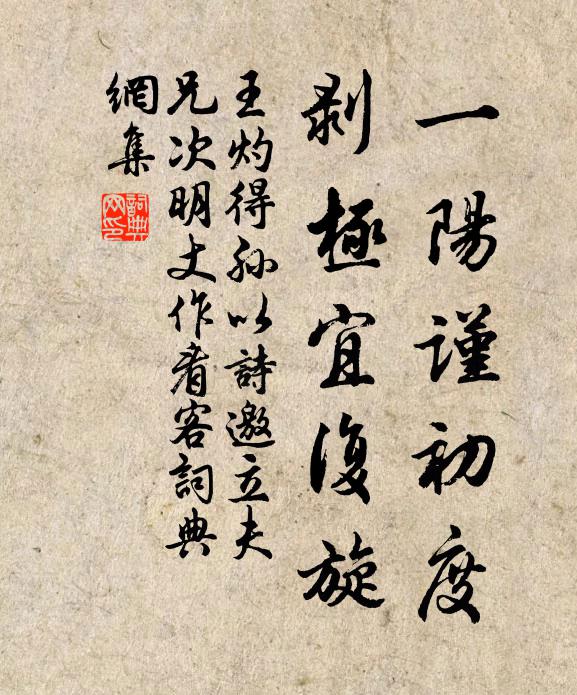 一陽謹初度
剝極宜復旋
王灼得孫以詩邀立夫
兄次明丈作者客詞典
網集
詞典網印